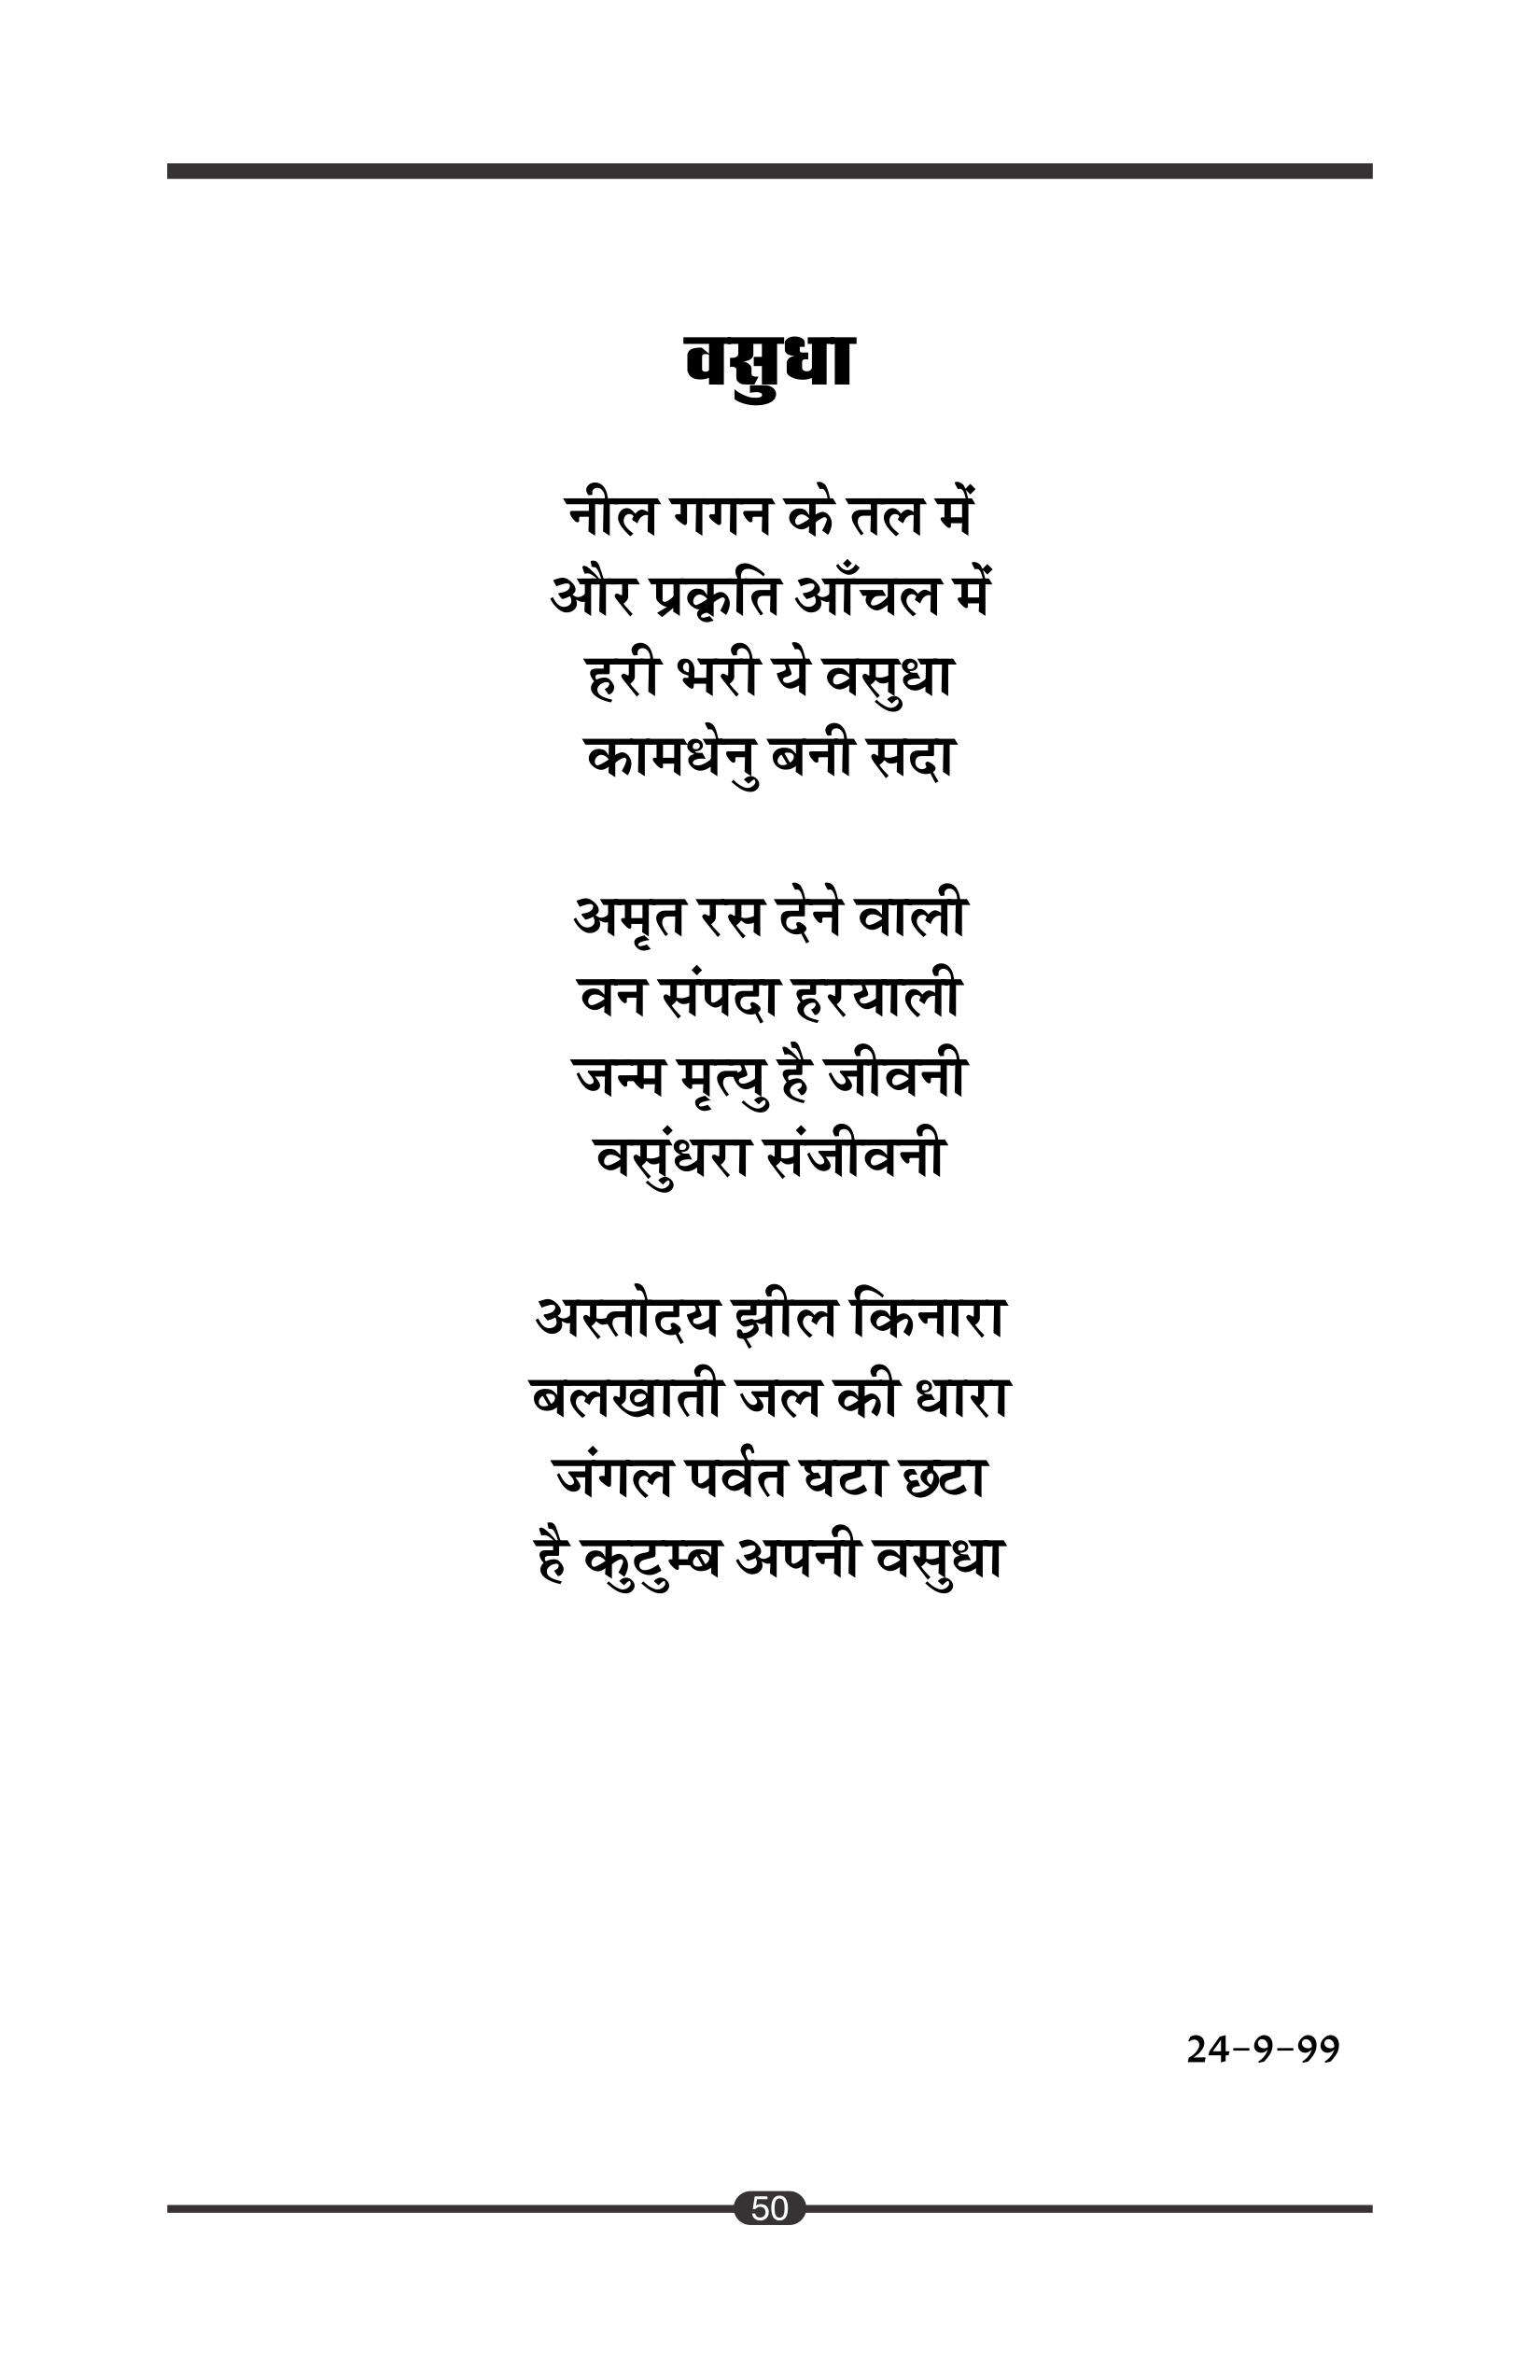 वसुधा
नील गगन के तल में
और प्रकृति आँचल में
हरी भरी ये वसुधा
कामधेनु बनी सदा
अमृत रस देने वाली
वन संपदा हरयाली
जन्म मृत्यु है जीवनी
वसुंधरा संजीवनी
अस्तोदय झील किनारा
बलखाती जल की धारा
जंगल पर्वत घटा छटा
है कुटुम्ब अपनी वसुधा
24-9-99
50